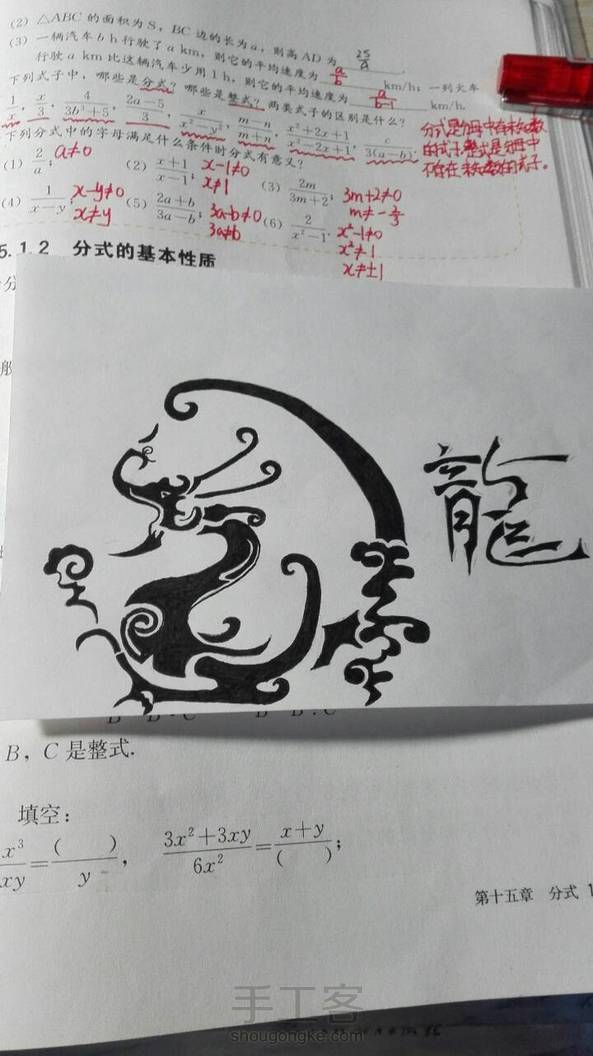 (2) △ABC 的面积为 S，BC 边的长为 a，则高 AD 为 2S/a.
(3) 一辆汽车 b h 行驶了 a km，则它的平均速度为 a/b km/h；一列火车
行驶 a km 比这辆汽车少用 1 h，则它的平均速度为 a/b-1 km/h.
下列式子中，哪些是分式？哪些是整式？两类式子的区别是什么？
1/x, x/3, 4/(3b³+5), (2a-5)/3, x/(x²-y²), (m-n)/(m+n), (x²+2x+1)/(x²-2x+1), c/(3(a-b)).
分式是分母中含有未知数
的式子.整式是分母中
不存在未知数的式子.
下列分式中的字母满足什么条件时分式有意义？
(1) 2/a; a≠0 (2) (x+1)/(x-1); x-1≠0 x≠1 (3) 2m/(3m+2); 3m+2≠0 m≠-2/3
(4) 1/(x-y); x-y≠0 x≠y (5) (2a+b)/(3a-b); 3a-b≠0 3a≠b (6) 2/(x²-1). x²-1≠0 x²≠1 x≠±1
5.1.2 分式的基本性质
龍
B，C 是整式.
填空：
x³/xy=( )/y， (3x²+3xy)/6x²=(x+y)/( )；
第十五章 分式 1
手工客
shougongke.com